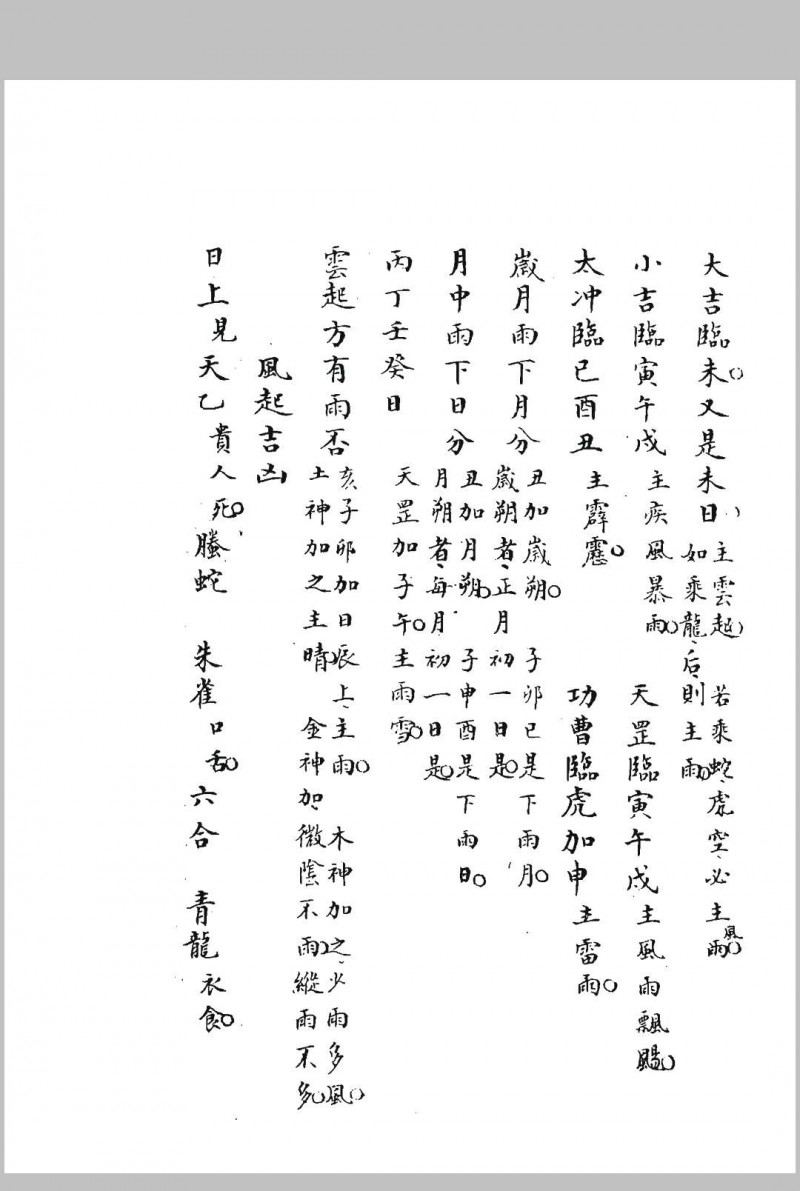 大吉臨未。又是未日 主雲起。若乘蛇、虎、空、必主風雨。
如乘龍、后、則主雨。
小吉臨寅午戌 主疾風暴雨。 天罡臨寅午戌 主風雨飄颺。
太冲臨巳酉丑 主霹靂。 功曹臨虎加申 主雷雨。
歲月雨下月分 丑加歲朔。 子卯巳是下雨月。
歲朔者、正月初一日是。
月中雨下日分 丑加月朔。 子申酉是下雨日。
月朔者、每月初一日是。
丙丁壬癸日 天罡加子午。主雨雪。
雲起方有雨否 亥子卯加日辰上、主雨。 木神加之、少雨多風。
土神加之主晴。 金神加、微陰不雨。縱雨不多。
風起吉凶
日上見天乙貴人 死。 螣蛇 朱雀 口舌。 六合 青龍 衣食。